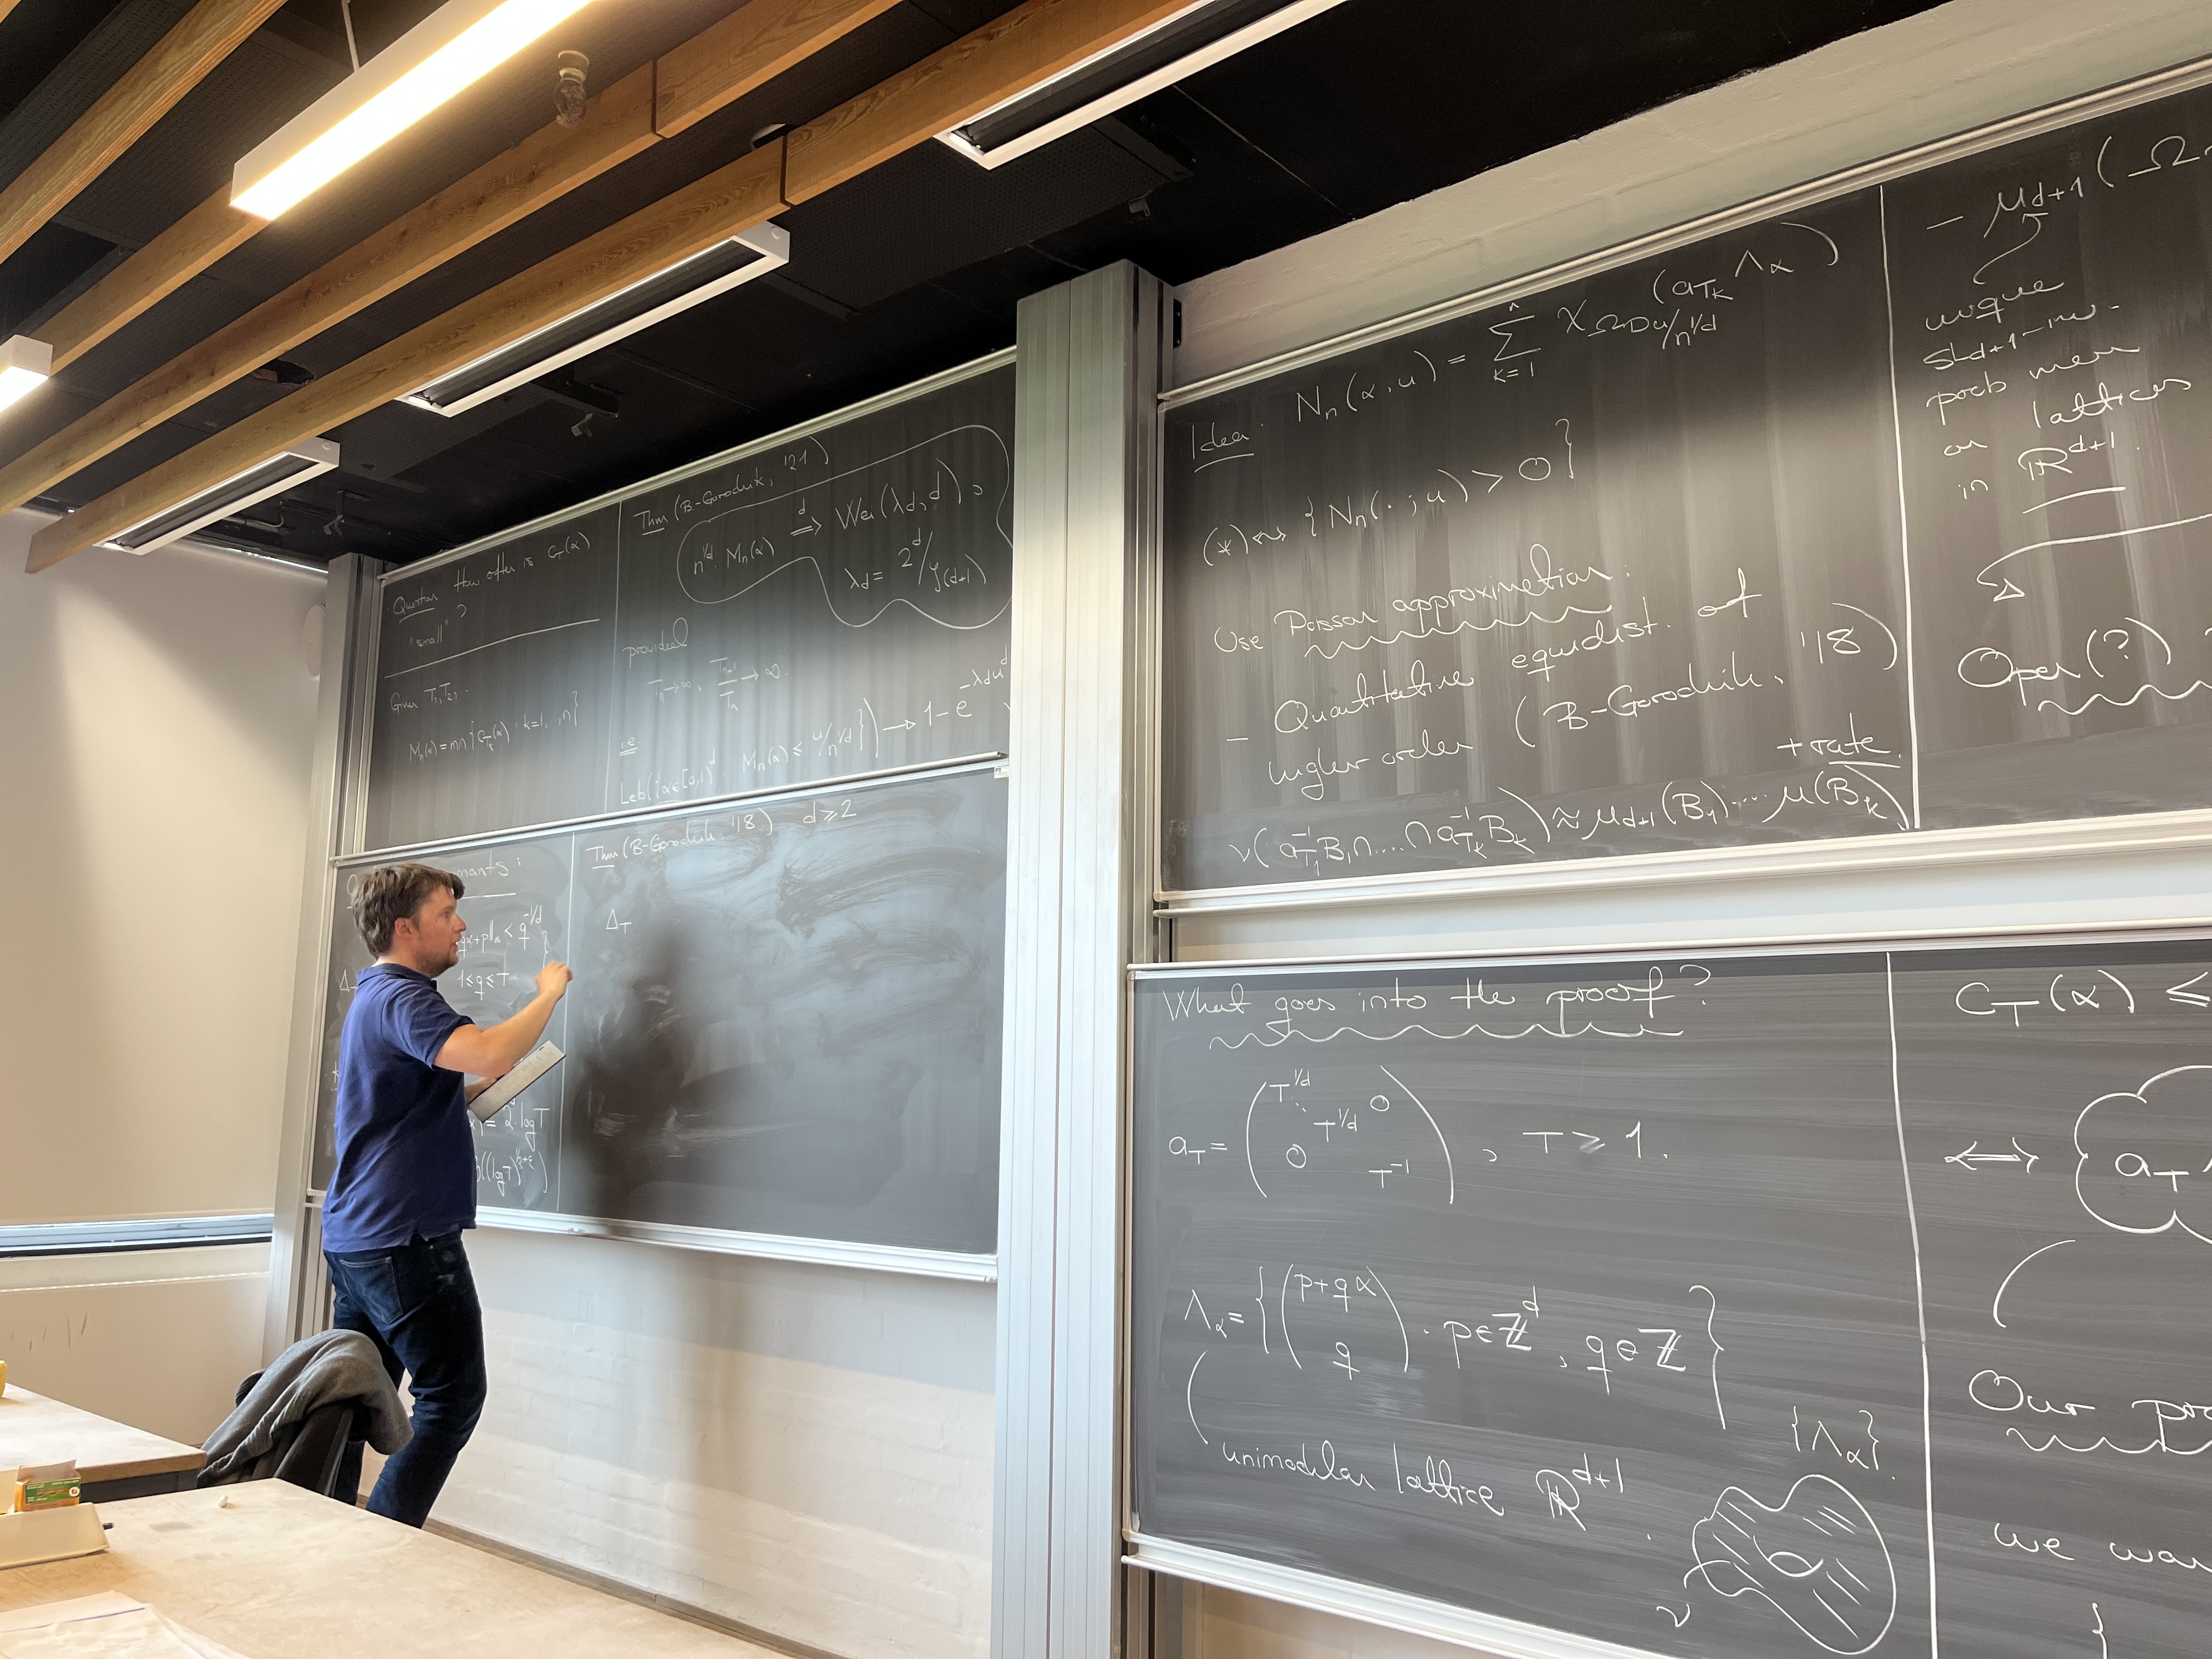 Question How often is C_T(α)
"small" ?
Given T₁, T₂, ..
M_n(α) = min { C_{T_k}(α) : k=1,..,n }
Thm (B-Gorodnik, '21)
n^{1/d} · M_n(α) ⇒^d Wei(λ_d, d),
λ_d = 2^d / ζ(d+1)
provided
T_n → ∞, T_{n+1}/T_n → ∞.
i.e
Leb({α ∈ [0,1)^d : M_n(α) ≤ u/n^{1/d}}) → 1 - e^{-λ_d u^d}
qα+p‖_∞ < q^{-1/d}
1 ≤ q ≤ T }
= 2^d · log T
((log T)^{1/2+ε})
Thm (B-Gorodnik '18) d ≥ 2
Δ_T
Idea: N_n(α, u) = Σ_{k=1}^n χ_{Ω_{u/n^{1/d}}} (a_{T_k} Λ_α)
(*) ↭ { N_n(· ; u) > 0 }
Use Poisson approximation:
– Quantitative equidist. of
higher order (B-Gorodnik, '18)
+ rate
ν(a_{T_1}^{-1} B_1 ∩ .... ∩ a_{T_k}^{-1} B_k) ≈ μ_{d+1}(B_1) ···· μ(B_k)
– μ_{d+1}(Ω
unique
SL_{d+1}-inv.
prob meas
on lattices
in ℝ^{d+1}.
Open(?)
What goes into the proof?
a_T = ( T^{1/d} ⋱ T^{1/d} 0
0 T^{-1} ) , T ≥ 1.
Λ_α = { ( p+qα
q ) : p ∈ ℤ^d, q ∈ ℤ }
unimodular lattice ℝ^{d+1}.
{Λ_α}.
ν
C_T(α) ≤
⟺ a_T
Our
we
{